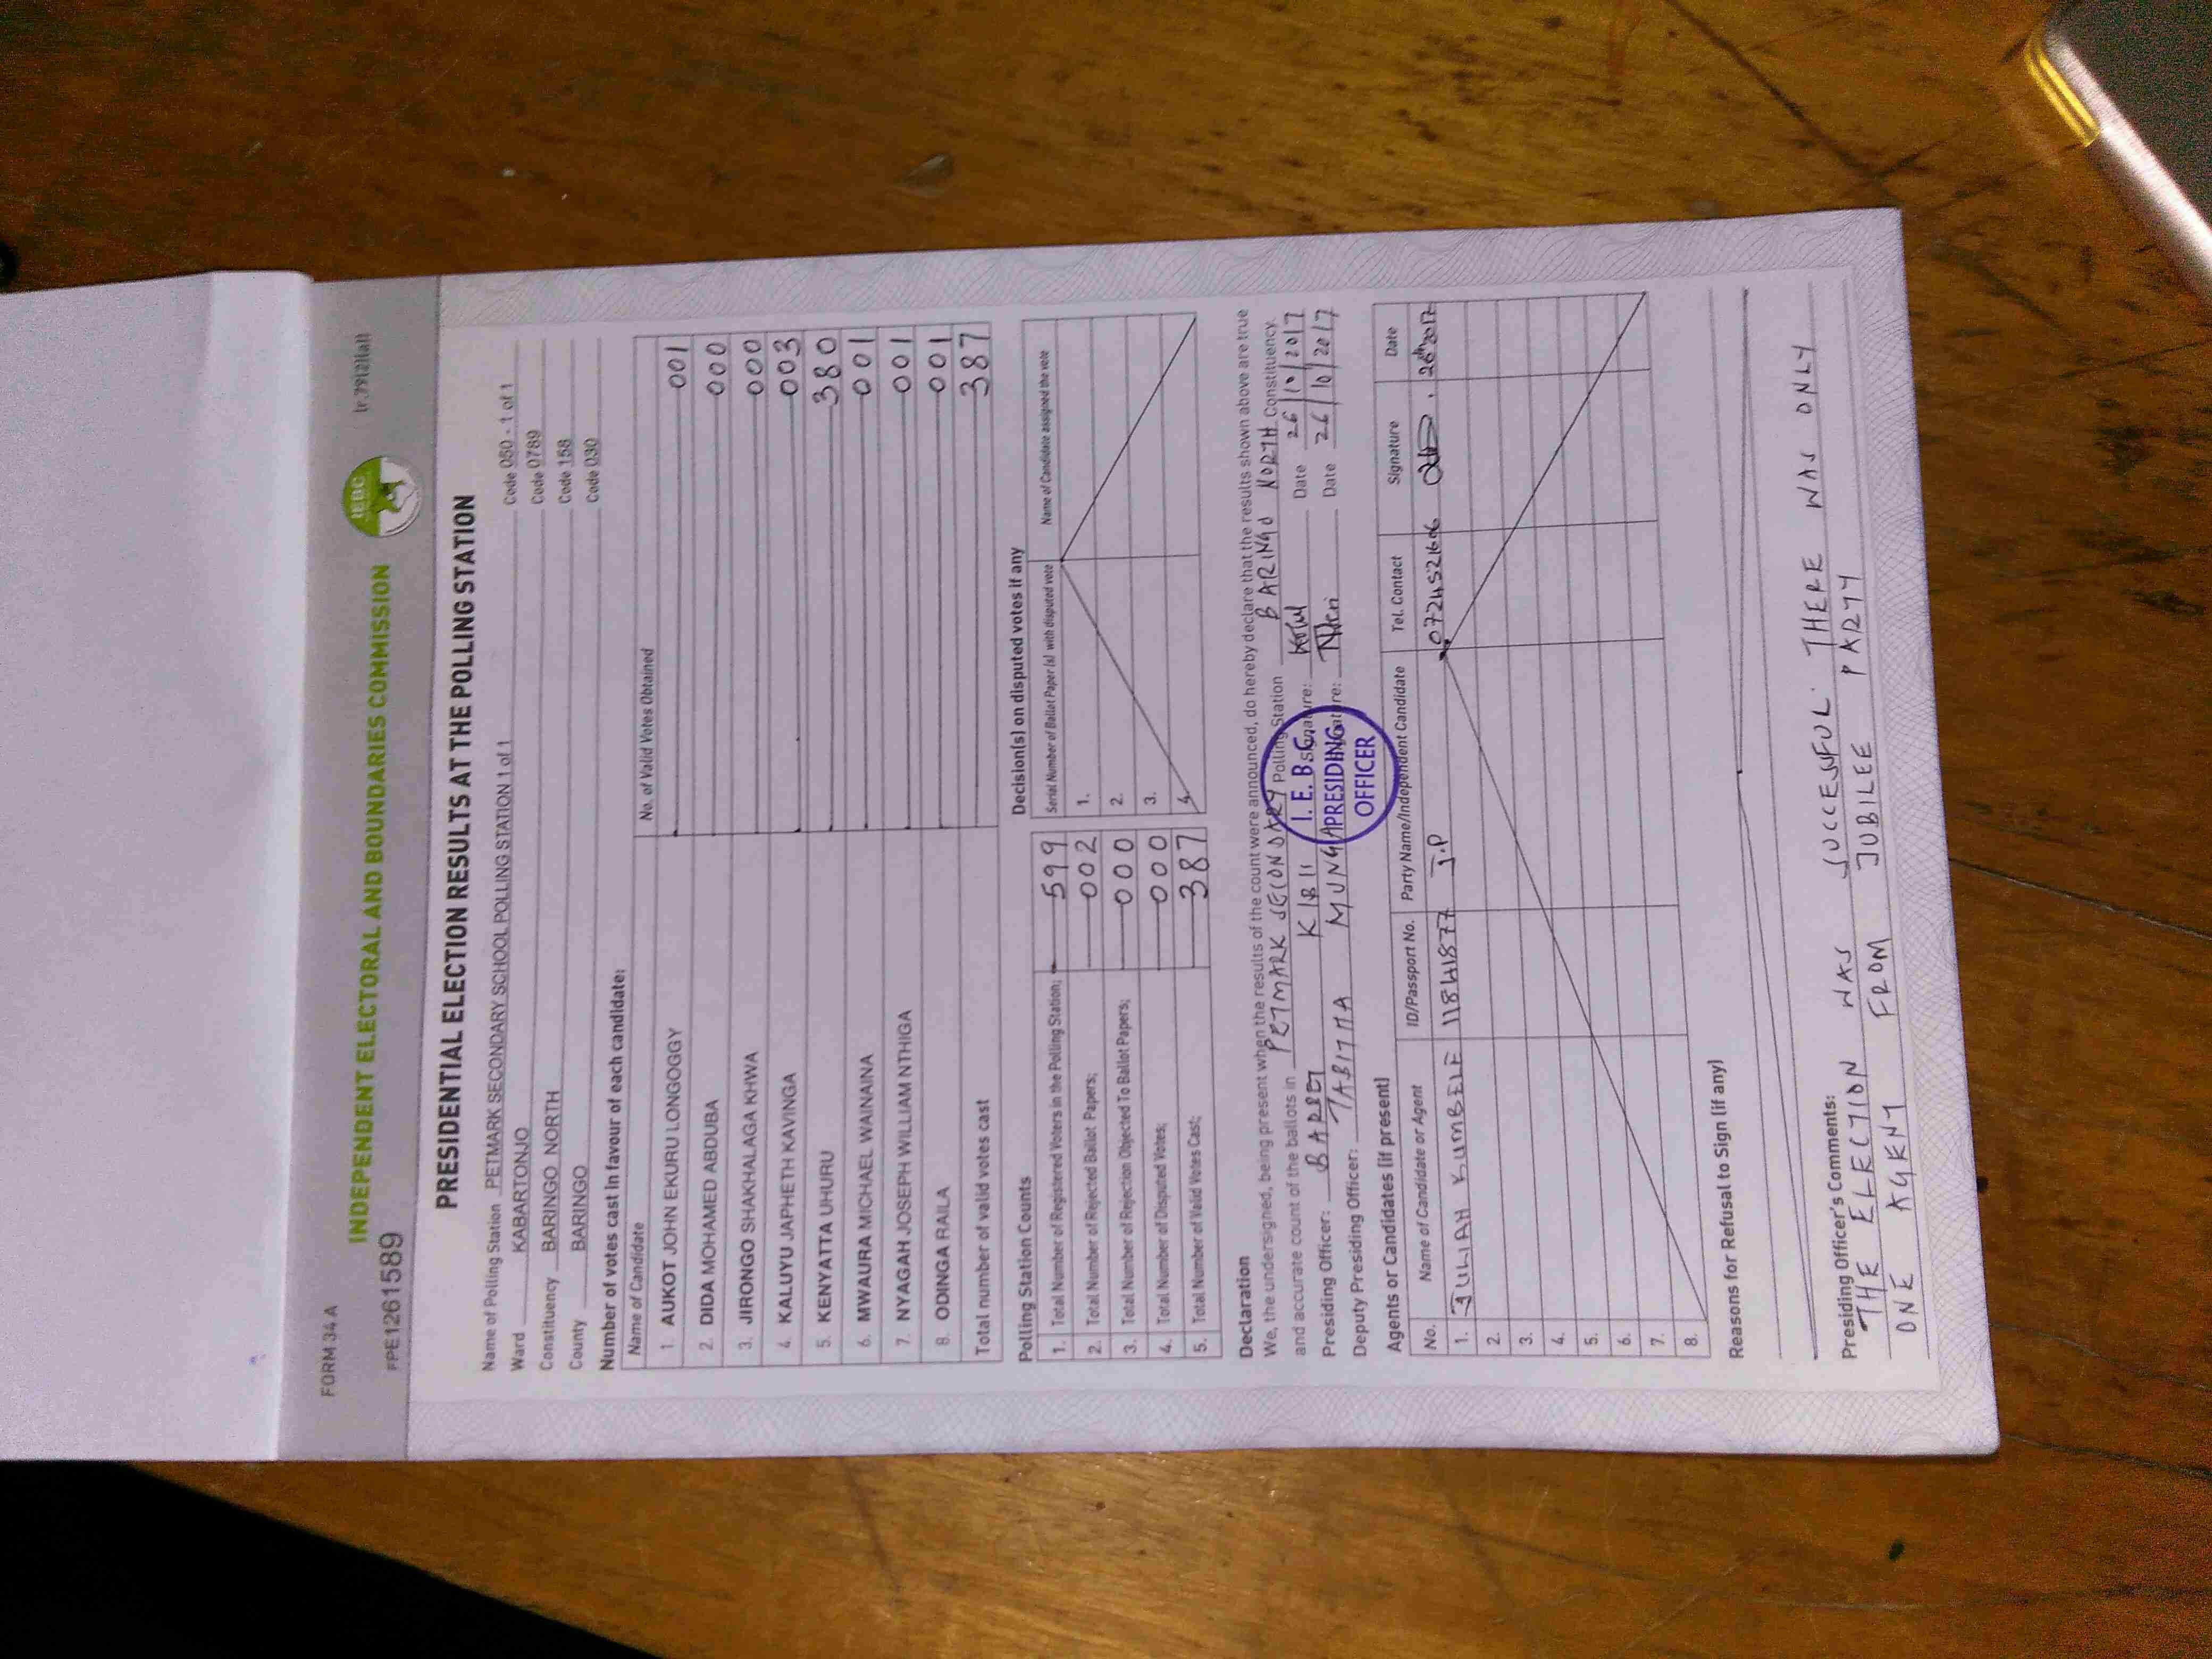 FORM 34 A
INDEPENDENT ELECTORAL AND BOUNDARIES COMMISSION
IEBC
(r.79(2)(a))
PPE1261589
PRESIDENTIAL ELECTION RESULTS AT THE POLLING STATION
Name of Polling Station PETMARK SECONDARY SCHOOL POLLING STATION 1 of 1 Code 050 - 1 of 1
Ward KABARTONJO Code 0789
Constituency BARINGO NORTH Code 158
County BARINGO Code 030
Number of votes cast in favour of each candidate:
Name of Candidate No. of Valid Votes Obtained
1. AUKOT JOHN EKURU LONGOGGY 001
2. DIDA MOHAMED ABDUBA 000
3. JIRONGO SHAKHALAGA KHWA 000
4. KALUYU JAPHETH KAVINGA 003
5. KENYATTA UHURU 380
6. MWAURA MICHAEL WAINAINA 001
7. NYAGAH JOSEPH WILLIAM NTHIGA 001
8. ODINGA RAILA 001
Total number of valid votes cast 387
Polling Station Counts
1. Total Number of Registered Voters in the Polling Station; 599
2. Total Number of Rejected Ballot Papers; 002
3. Total Number of Rejection Objected To Ballot Papers; 000
4. Total Number of Disputed Votes; 000
5. Total Number of Valid Votes Cast; 387
Decision(s) on disputed votes if any
Serial Number of Ballot Paper (s) with disputed vote Name of Candidate assigned the vote
1.
2.
3.
4.
Declaration
We, the undersigned, being present when the results of the count were announced, do hereby declare that the results shown above are true
and accurate count of the ballots in PETMARK SECONDARY Polling Station BARINGO NORTH Constituency.
Presiding Officer: KIBII Signature: Date 26/10/2017
Deputy Presiding Officer: TABITHA Date 26/10/2017
I. E. B. C
PRESIDING
OFFICER
Agents or Candidates (if present)
No. Name of Candidate or Agent ID/Passport No. Party Name/Independent Candidate Tel. Contact Signature Date
1. JULIAH 11841877 J.P 0724521606
2.
3.
4.
5.
6.
7.
8.
Reasons for Refusal to Sign (if any)
Presiding Officer's Comments:
THE ELECTION WAS SUCCESSFUL. THERE WAS ONLY
ONE AGENT FROM JUBILEE PARTY